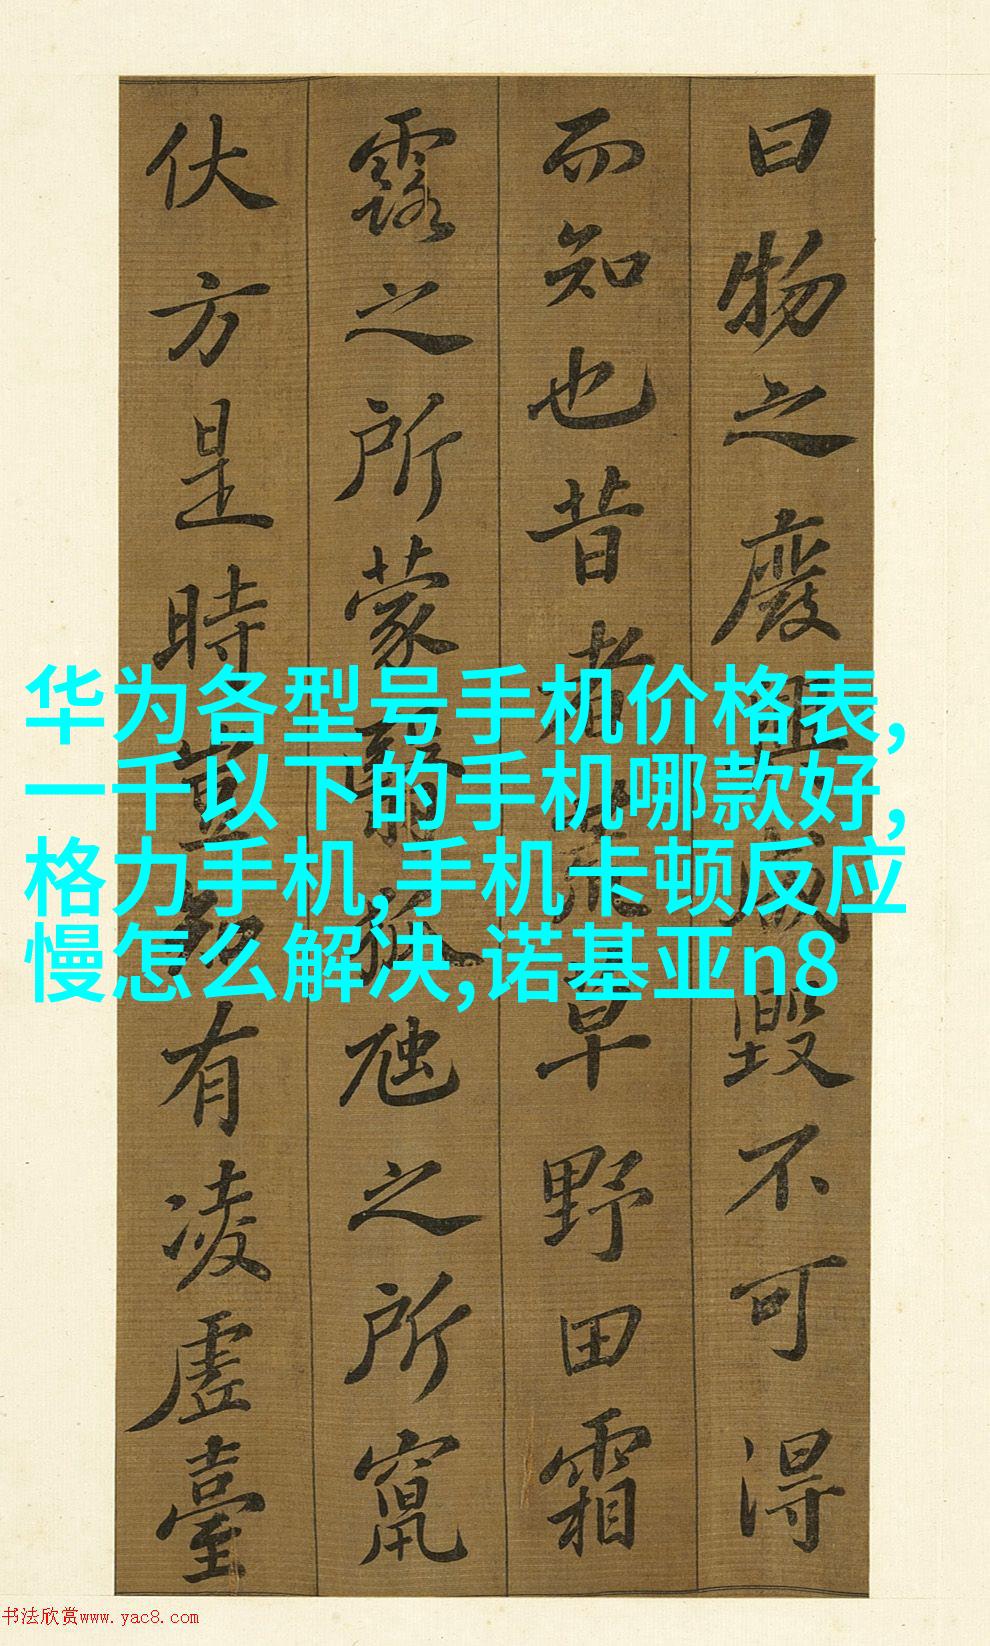 曰物之廢興成毀不可得
而知也昔者荒草野田霜
露之所蒙翳狐虺之所竄
伏方是時豈知有凌虛臺
华为各型号手机价格表,
一千以下的手机哪款好,
格力手机,手机卡顿反应
慢怎么解决,诺基亚n8
书法欣赏www.yac8.com